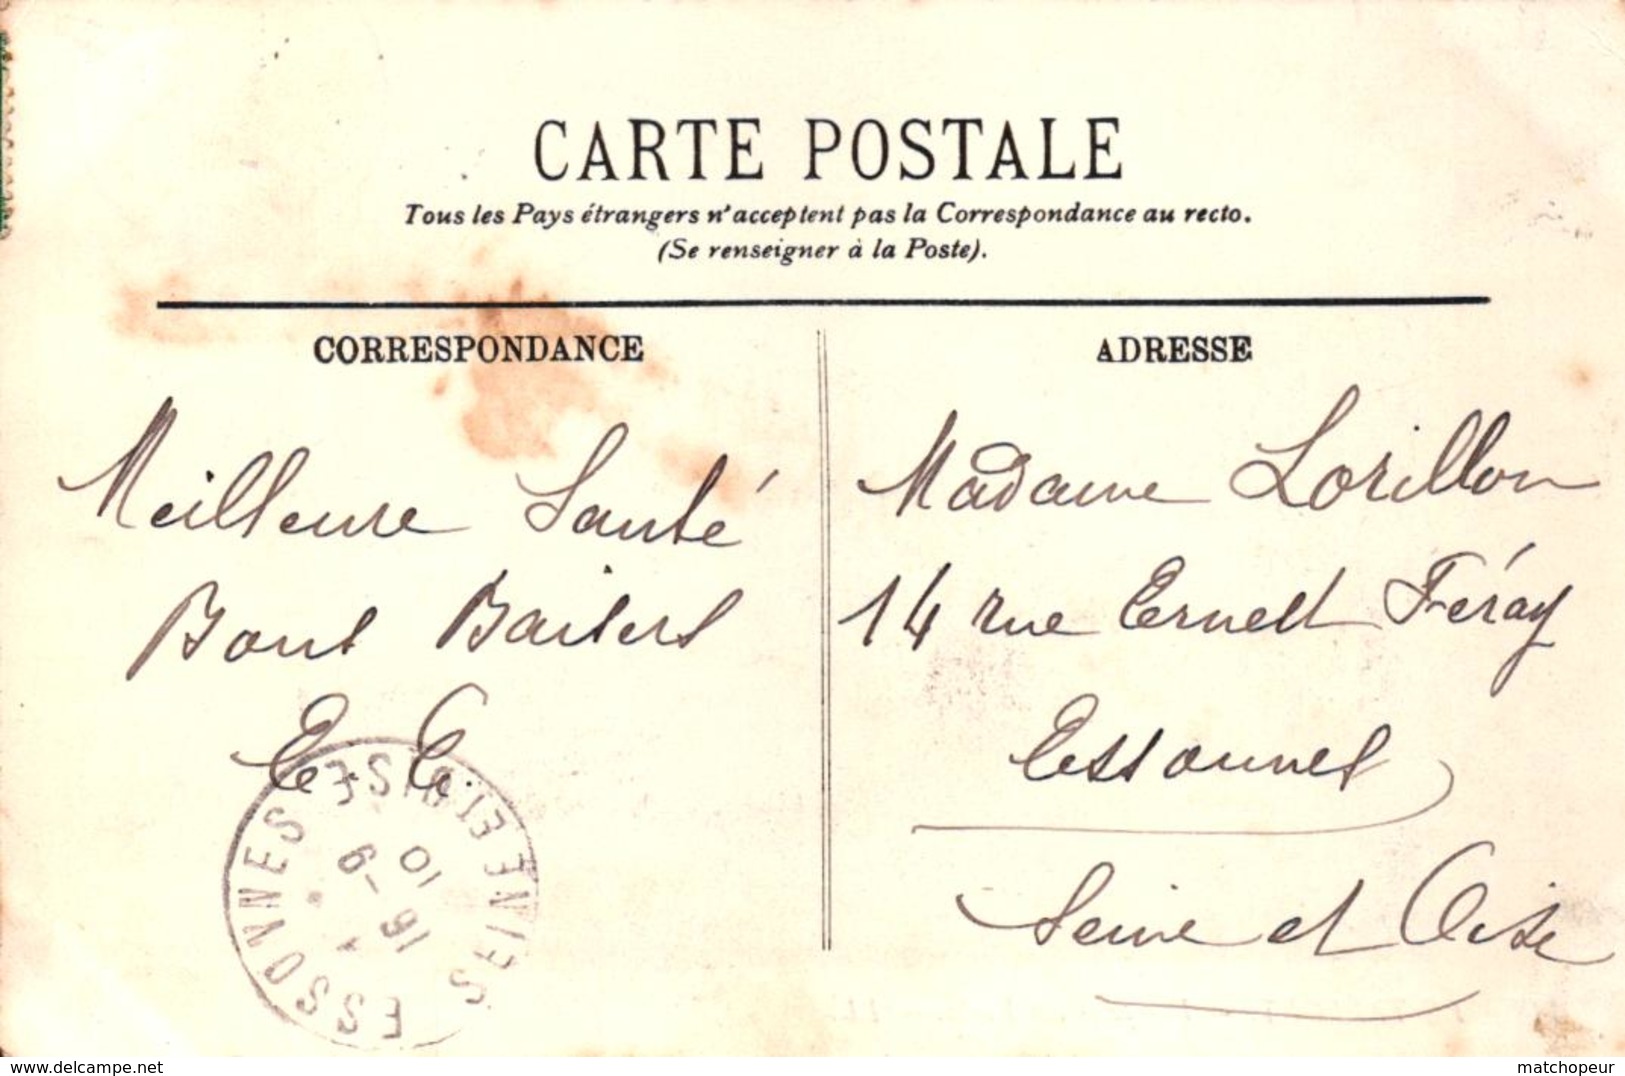 CARTE POSTALE
Tous les Pays étrangers n'acceptent pas la Correspondance au recto.
(Se renseigner à la Poste).
CORRESPONDANCE
Meilleure Santé
Bons Baisers
E. E.
ADRESSE
Madame Lorillon
14 rue Ernest Féray
Essonnes
Seine et Oise
ESSONNES SEINE ET OISE
16 - 9
10
www.delcampe.net
matchopeur